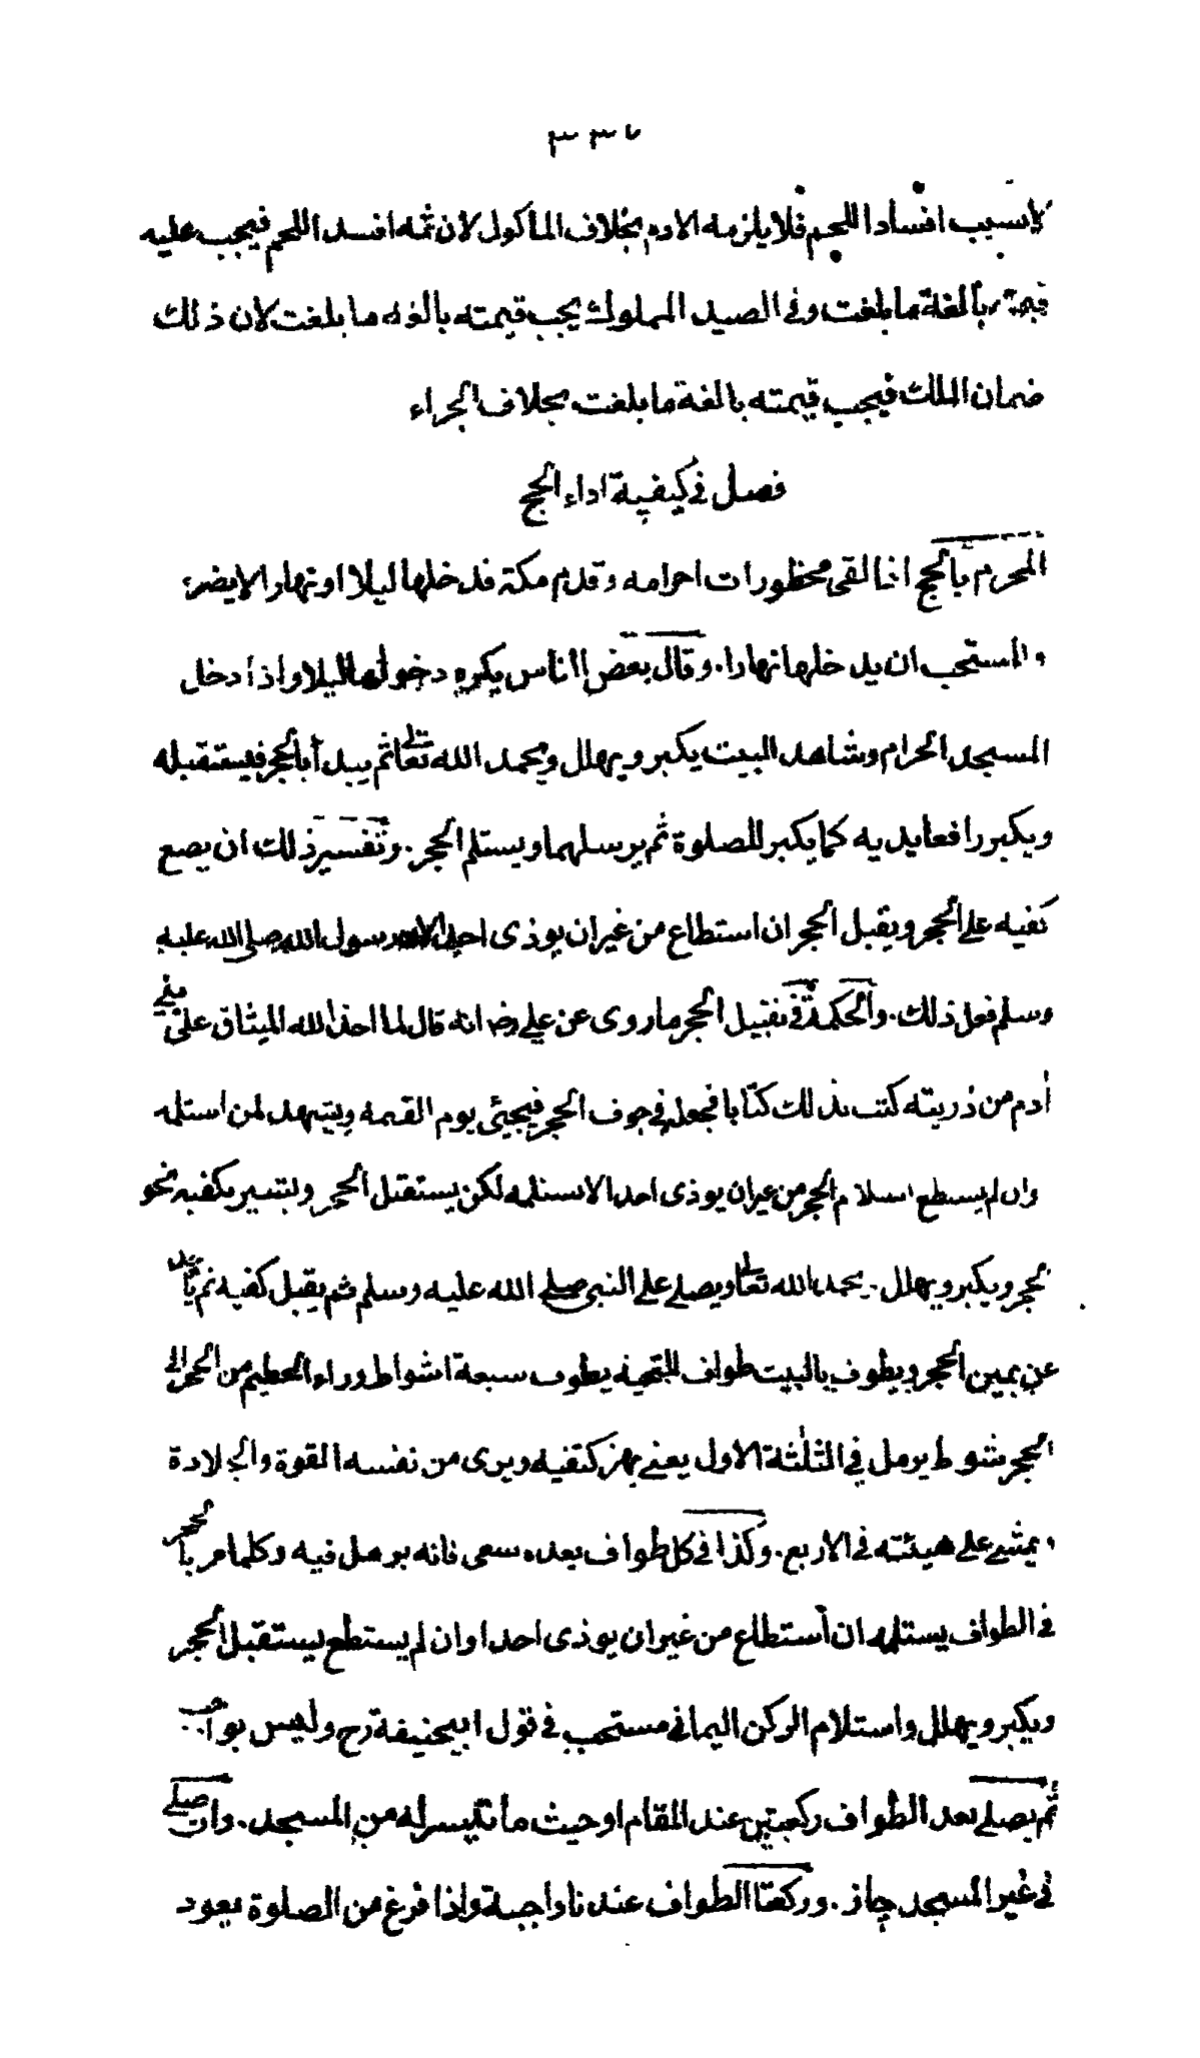 ٣٣٧
لا بسبب افساد اللحم فلا يلزمه الا دم بخلاف المأكول لان ثمه افسد اللحم فيجب عليه
قيمته بالغة ما بلغت وفى الصيد المملوك يجب قيمته بالغه ما بلغت لان ذلك
ضمان الملك فيجب قيمته بالغة ما بلغت بخلاف الجزاء
فصل فى كيفية اداء الحج
المحرم بالحج اذا لقى محظورات احرامه وقدم مكة فدخلها ليلا او نهارا لا يضره
والمستحب ان يدخلها نهارا. وقال بعض الناس يكره دخولها ليلا واذا دخل
المسجد الحرام وشاهد البيت يكبر ويهلل ويحمد الله تعالى ثم يبدأ بالحجر فيستقبله
ويكبر رافعا يديه كما يكبر للصلوة ثم يرسلهما ويستلم الحجر. وتفسير ذلك ان يضع
كفيه على الحجر ويقبل الحجر ان استطاع من غير ان يوذى احدا لان رسول الله صلى الله عليه
وسلم فعل ذلك. والحكمة فى تقبيل الحجر ما روى عن على رضـ انه قال لما اخذ الله الميثاق على بنى
ادم من ذريته كتب بذلك كتابا فجعله فى جوف الحجر فيجيئ يوم القيمة ويشهد لمن استلمه
وان لم يستطع استلام الحجر من غير ان يوذى احدا لا يستلمه لكن يستقبل الحجر ويشير بكفيه نحو
الحجر ويكبر ويهلل. يحمد الله تعالى ويصلى على النبى صلى الله عليه وسلم ثم يقبل كفيه ثم يأخذ
عن يمين الحجر ويطوف بالبيت طواف التحية يطوف سبعة اشواط وراء الحطيم من الحجر الى
الحجر شوط يرمل فى الثلثة الاول يعنى يهز كتفيه ويرى من نفسه القوة والجلادة
ويمشى على هيئته فى الاربع. وكذا فى كل طواف بعده سعى فانه يرمل فيه وكلما مر بالحجر
فى الطواف يستلمه ان استطاع من غير ان يوذى احدا وان لم يستطع يستقبل الحجر
ويكبر ويهلل واستلام الركن اليمانى مستحب فى قول ابيحنيفة رح وليس بواجب
ثم يصلى بعد الطواف ركعتين عند المقام او حيث ما تيسر له من المسجد. وان صلى
فى غير المسجد جاز. وركعتا الطواف عندنا واجبة واذا فرغ من الصلوة يعود